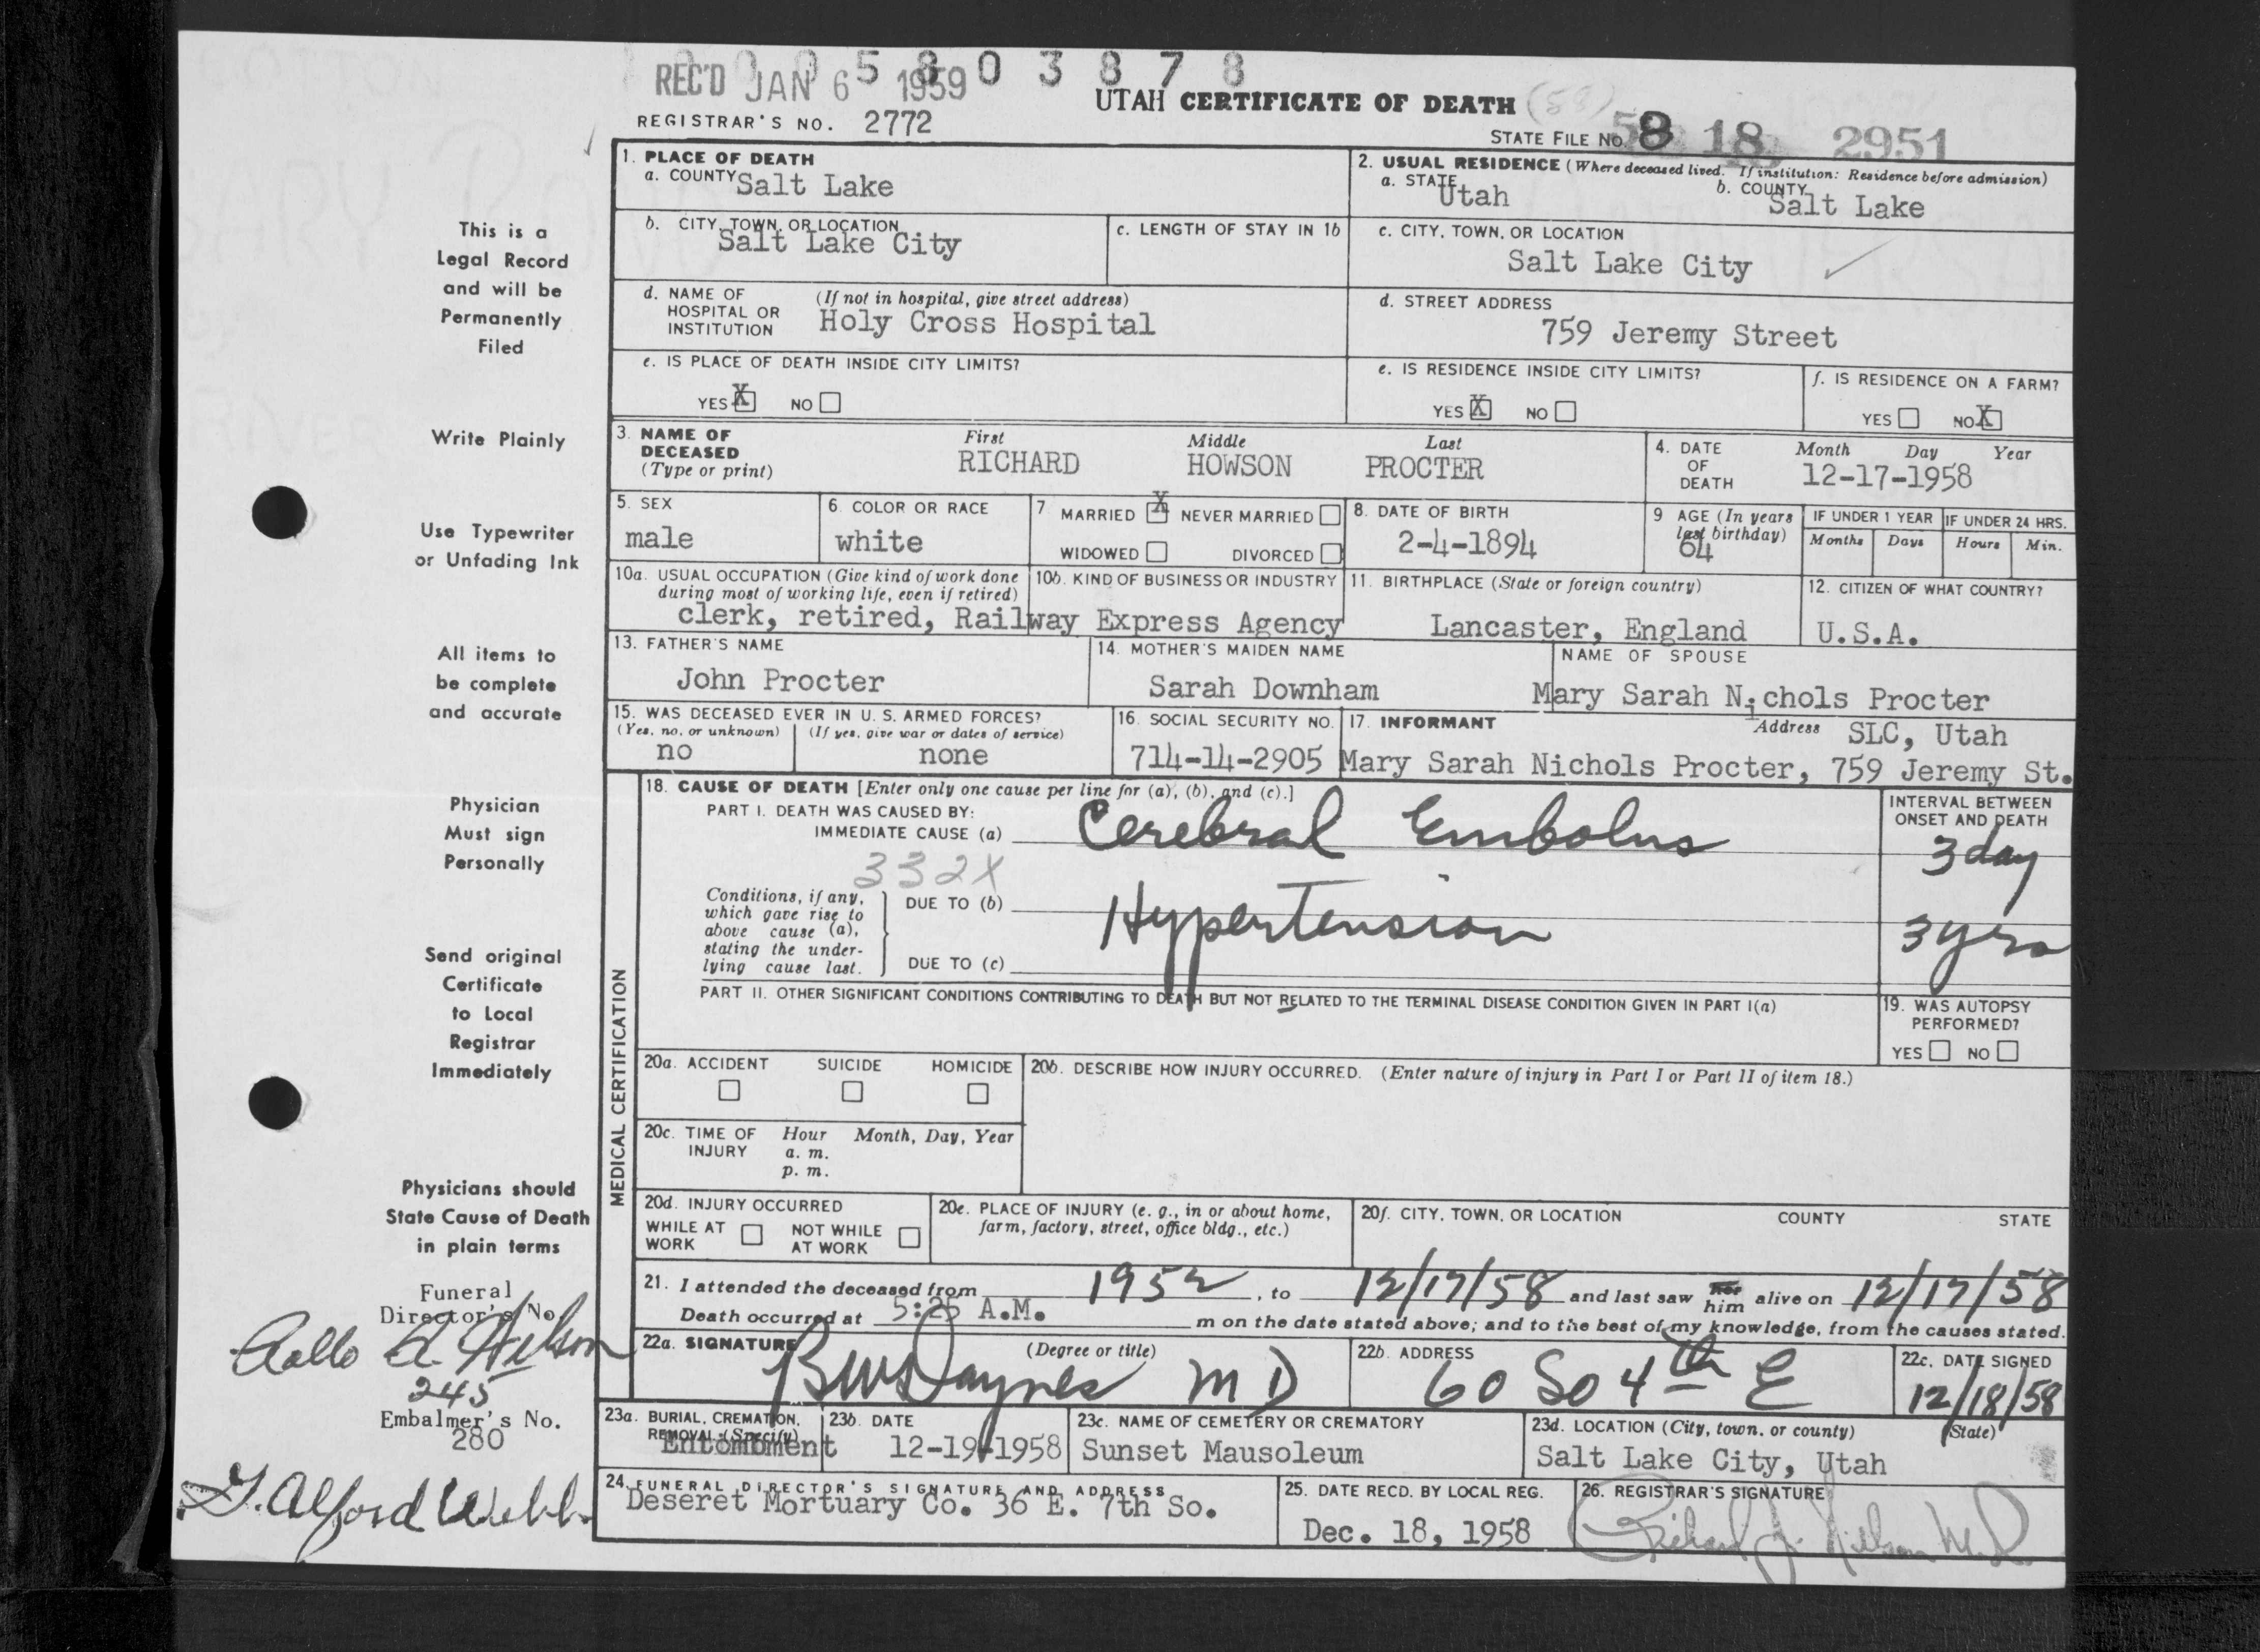 1 0 0 0 5 8 0 3 8 7 8
REC'D JAN 6 1959
UTAH CERTIFICATE OF DEATH (58)
REGISTRAR'S NO. 2772
STATE FILE No. 58 18 2951
This is a
Legal Record
and will be
Permanently
Filed
Write Plainly
Use Typewriter
or Unfading Ink
All items to
be complete
and accurate
Physician
Must sign
Personally
Send original
Certificate
to Local
Registrar
Immediately
Physicians should
State Cause of Death
in plain terms
Funeral
Director's No.
245
Embalmer's No.
280
Alford Webb
1. PLACE OF DEATH
a. COUNTY Salt Lake
2. USUAL RESIDENCE (Where deceased lived. If institution: Residence before admission)
a. STATE Utah b. COUNTY Salt Lake
b. CITY, TOWN, OR LOCATION Salt Lake City
c. LENGTH OF STAY IN 1b
c. CITY, TOWN, OR LOCATION
Salt Lake City
d. NAME OF HOSPITAL OR INSTITUTION (If not in hospital, give street address)
Holy Cross Hospital
d. STREET ADDRESS
759 Jeremy Street
e. IS PLACE OF DEATH INSIDE CITY LIMITS?
YES X NO
e. IS RESIDENCE INSIDE CITY LIMITS?
YES X NO
f. IS RESIDENCE ON A FARM?
YES NO X
3. NAME OF DECEASED (Type or print)
First Middle Last
RICHARD HOWSON PROCTER
4. DATE OF DEATH Month Day Year
12-17-1958
5. SEX
male
6. COLOR OR RACE
white
7. MARRIED X NEVER MARRIED
WIDOWED DIVORCED
8. DATE OF BIRTH
2-4-1894
9 AGE (In years last birthday)
64
IF UNDER 1 YEAR IF UNDER 24 HRS.
Months Days Hours Min.
10a. USUAL OCCUPATION (Give kind of work done during most of working life, even if retired)
10b. KIND OF BUSINESS OR INDUSTRY
clerk, retired, Railway Express Agency
11. BIRTHPLACE (State or foreign country)
Lancaster, England
12. CITIZEN OF WHAT COUNTRY?
U.S.A.
13. FATHER'S NAME
John Procter
14. MOTHER'S MAIDEN NAME
Sarah Downham
NAME OF SPOUSE
Mary Sarah Nichols Procter
15. WAS DECEASED EVER IN U. S. ARMED FORCES?
(Yes, no, or unknown) (If yes, give war or dates of service)
no none
16. SOCIAL SECURITY NO.
714-14-2905
17. INFORMANT Address SLC, Utah
Mary Sarah Nichols Procter, 759 Jeremy St.
MEDICAL CERTIFICATION
18. CAUSE OF DEATH [Enter only one cause per line for (a), (b), and (c).]
PART I. DEATH WAS CAUSED BY:
IMMEDIATE CAUSE (a) Cerebral Embolus
332X
INTERVAL BETWEEN ONSET AND DEATH
3 day
Conditions, if any, which gave rise to above cause (a), stating the underlying cause last.
DUE TO (b) Hypertension
3 yrs
DUE TO (c)
PART II. OTHER SIGNIFICANT CONDITIONS CONTRIBUTING TO DEATH BUT NOT RELATED TO THE TERMINAL DISEASE CONDITION GIVEN IN PART I(a)
19. WAS AUTOPSY PERFORMED?
YES NO
20a. ACCIDENT SUICIDE HOMICIDE
20b. DESCRIBE HOW INJURY OCCURRED. (Enter nature of injury in Part I or Part II of item 18.)
20c. TIME OF INJURY Hour Month, Day, Year
a. m.
p. m.
20d. INJURY OCCURRED
WHILE AT WORK NOT WHILE AT WORK
20e. PLACE OF INJURY (e. g., in or about home, farm, factory, street, office bldg., etc.)
20f. CITY, TOWN, OR LOCATION COUNTY STATE
21. I attended the deceased from 1952, to 12/17/58 and last saw her him alive on 12/17/58
Death occurred at 5:25 A.M. m on the date stated above; and to the best of my knowledge, from the causes stated.
22a. SIGNATURE (Degree or title)
BW Daynes MD
22b. ADDRESS
60 So 4th E
22c. DATE SIGNED
12/18/58
23a. BURIAL, CREMATION, REMOVAL (Specify)
Entombment
23b. DATE
12-19-1958
23c. NAME OF CEMETERY OR CREMATORY
Sunset Mausoleum
23d. LOCATION (City, town, or county) (State)
Salt Lake City, Utah
24. FUNERAL DIRECTOR'S SIGNATURE AND ADDRESS
Deseret Mortuary Co. 36 E. 7th So.
25. DATE RECD. BY LOCAL REG.
Dec. 18, 1958
26. REGISTRAR'S SIGNATURE
Richard J. Nielson M.D.